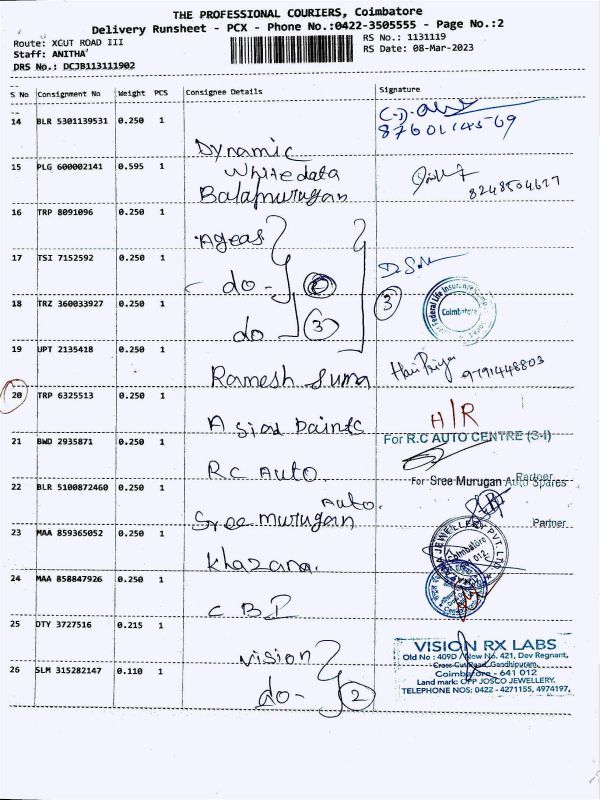 THE PROFESSIONAL COURIERS, Coimbatore
Delivery Runsheet - PCX - Phone No.:0422-3505555 - Page No.:2
Route: XCUT ROAD III
Staff: ANITHA
DRS No.: DCJB113111902
RS No.: 1131119
RS Date: 08-Mar-2023
S No Consignment No Weight PCS Consignee Details Signature
14 BLR 5301139531 0.250 1 Dynamic
8760114569
15 PLG 600002141 0.595 1 Whitedata
Balamurugan
8248504627
16 TRP 8091096 0.250 1 Ageas
17 TSI 7152592 0.250 1 do -
18 TRZ 360033927 0.250 1 do 3
3
Federal Life Insurance
Coimbatore
19 UPT 2135418 0.250 1 Ramesh Suma
Hari Priya 9791448803
20 TRP 6325513 0.250 1 Asian Paints
H/R
21 BWD 2935871 0.250 1 RC Auto.
For R.C AUTO CENTRE (S-I)
Partner
22 BLR 5100872460 0.250 1 Sree Murugan Auto.
For Sree Murugan Auto Spares
Partner
23 MAA 859365052 0.250 1 Khazana.
JEWELLERY PVT. LTD
Coimbatore
012
24 MAA 858847926 0.250 1 CBI
25 DTY 3727516 0.215 1 Vision
26 SLM 315282147 0.110 1 do - 2
VISION RX LABS
Old No : 409D / New No. 421, Dev Regnant,
Cross Cut Road, Gandhipuram,
Coimbatore - 641 012
Land mark: OPP JOSCO JEWELLERY.
TELEPHONE NOS: 0422 - 4271155, 4974197,